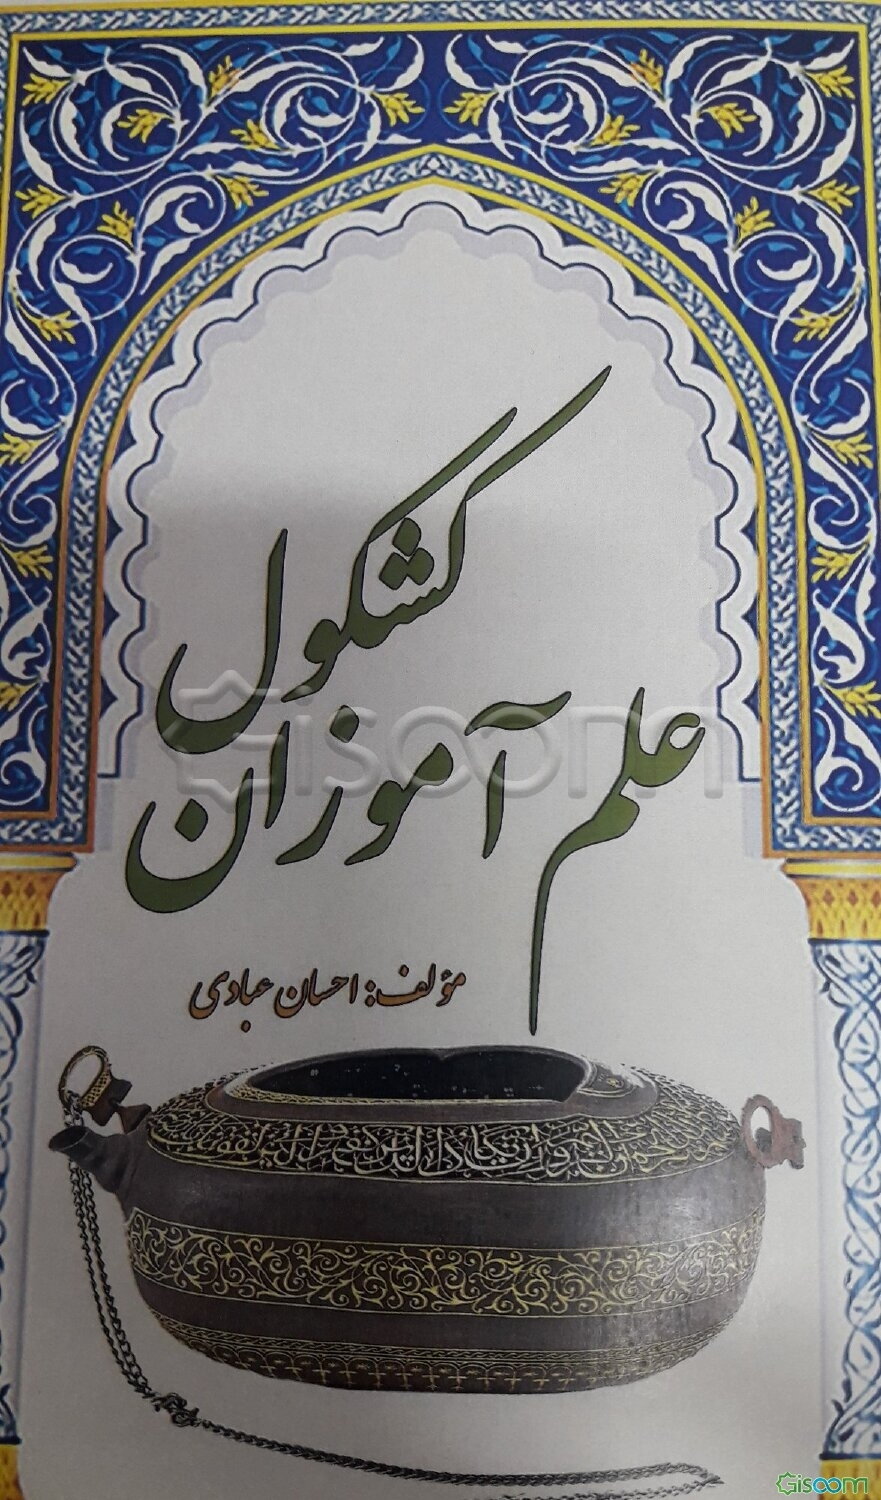 کشکول
علم آموزان
مؤلف: احسان عبادی
Gisoom
Gisoom